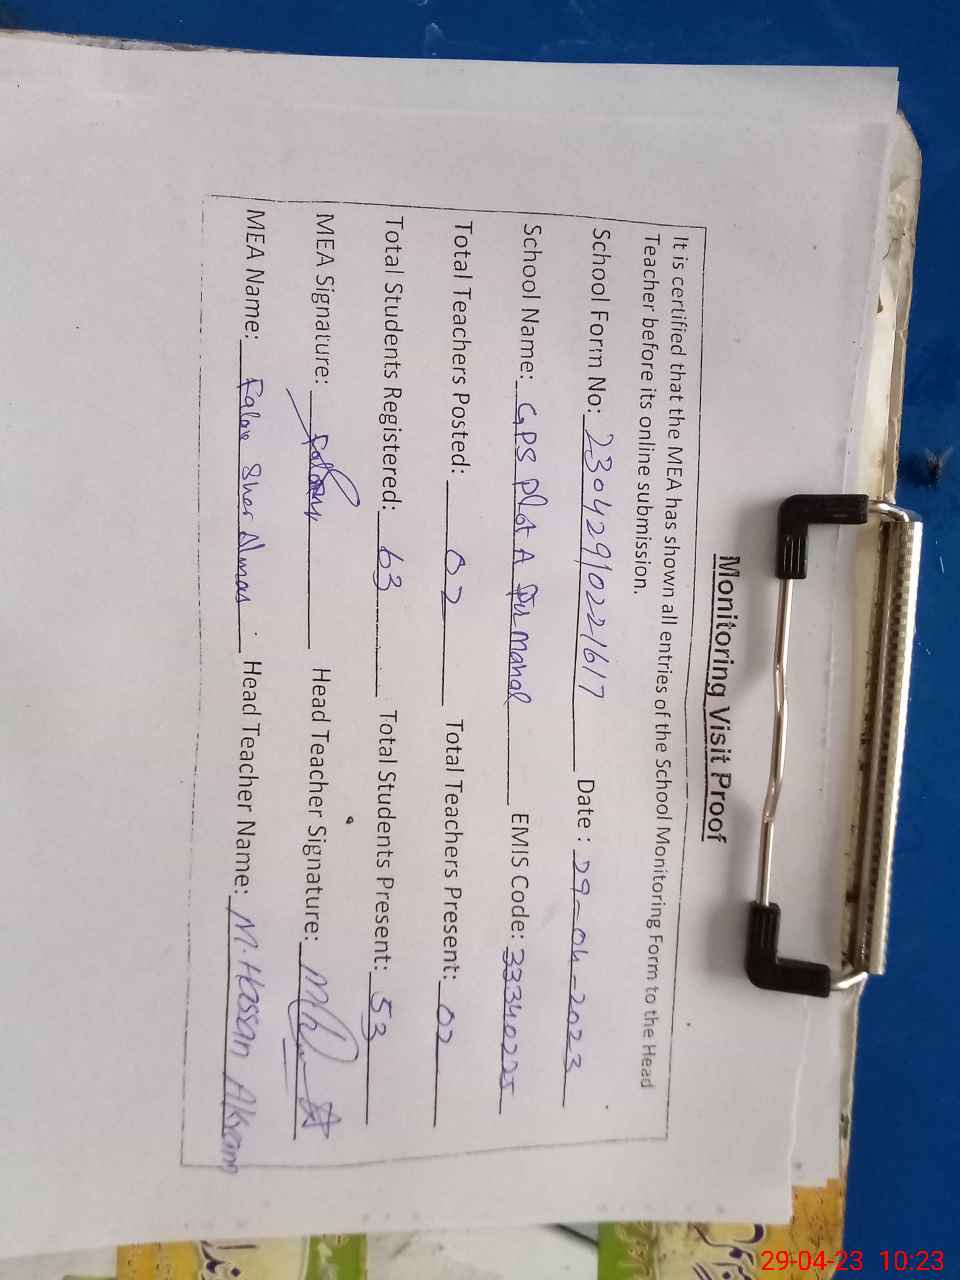 Monitoring Visit Proof
It is certified that the MEA has shown all entries of the School Monitoring Form to the Head
Teacher before its online submission.
School Form No: 23042910221617 Date : 29-04-2023
School Name: GPS Plot A Pir Mahal EMIS Code: 33340225
Total Teachers Posted: 02 Total Teachers Present: 02
Total Students Registered: 63 Total Students Present: 53
MEA Signature: Head Teacher Signature:
MEA Name: Sher Almas Head Teacher Name: M. Hassan Akram
29-04-23 10:23